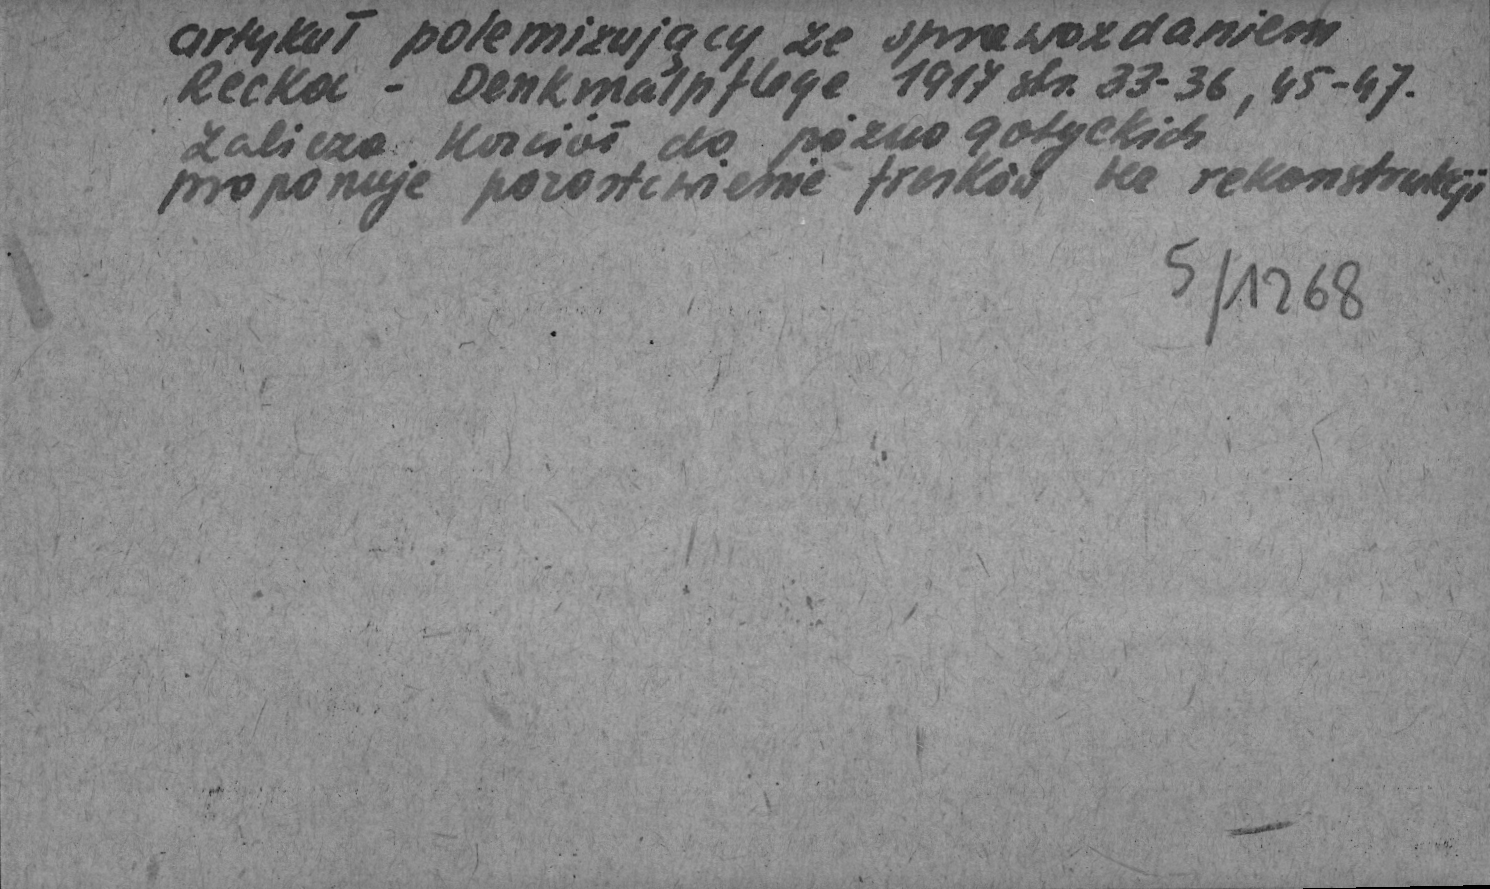 artykuł polemizujący ze sprawozdaniem
Recka - Denkmalpflege 1917 str. 33-36, 45-47.
zalicza kościół do późno gotyckich
proponuje pozostawienie fresków bez rekonstrukcji
5/1268